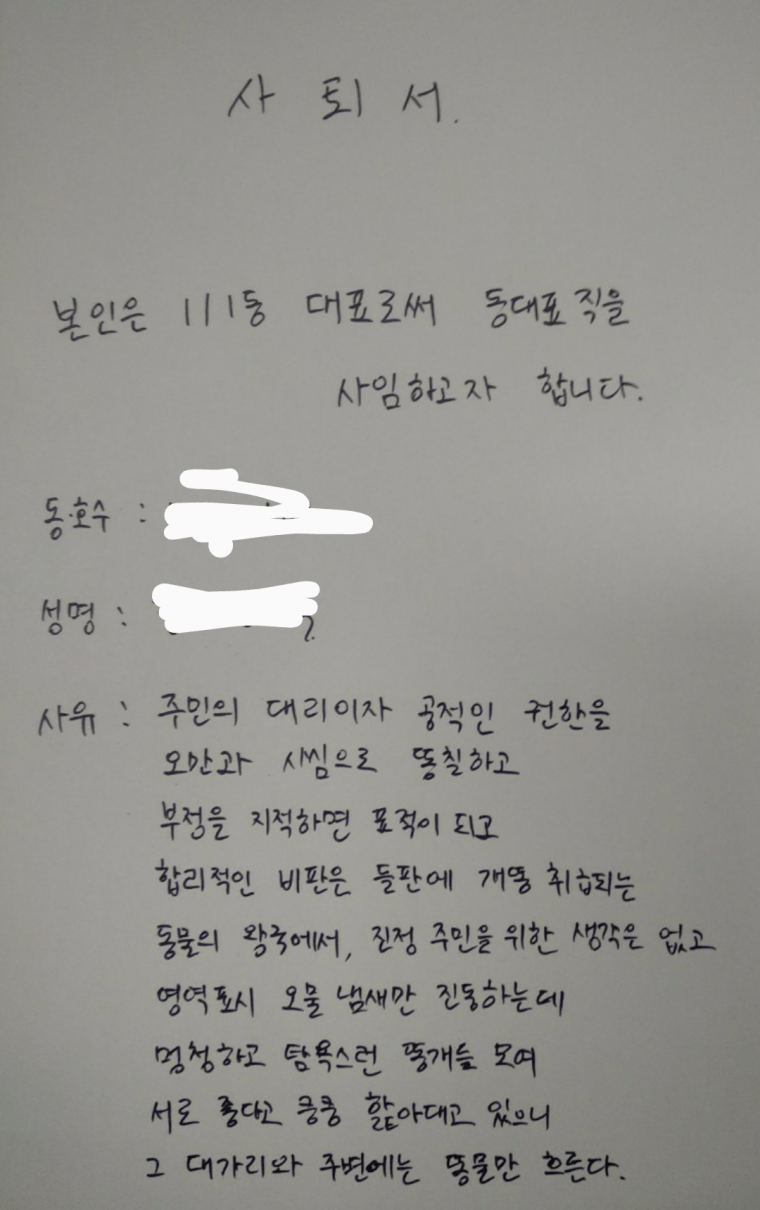 사 퇴 서.
본인은 111동 대표로써 동대표 직을
사임하고자 합니다.
동·호수 :
성명 :
사유 : 주민의 대리이자 공적인 권한을
오만과 사씸으로 똥칠하고
부정을 지적하면 표적이 되고
합리적인 비판은 들판에 개똥 취급되는
동물의 왕국에서, 진정 주민을 위한 생각은 없고
영역표시 오물 냄새만 진동하는데
멍청하고 탐욕스런 똥개들 모여
서로 좋다고 킁킁 핥아대고 있으니
그 대가리와 주변에는 똥물만 흐른다.